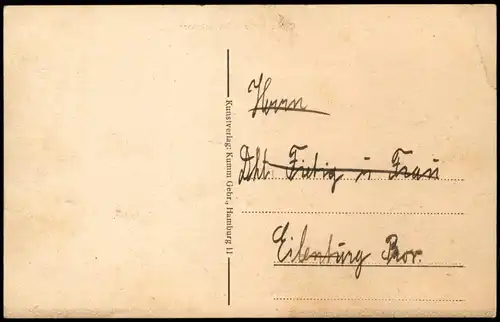 Kunstverlag: Kumm Gebr., Hamburg 11
Herrn
Fietig u Frau
Eilenburg